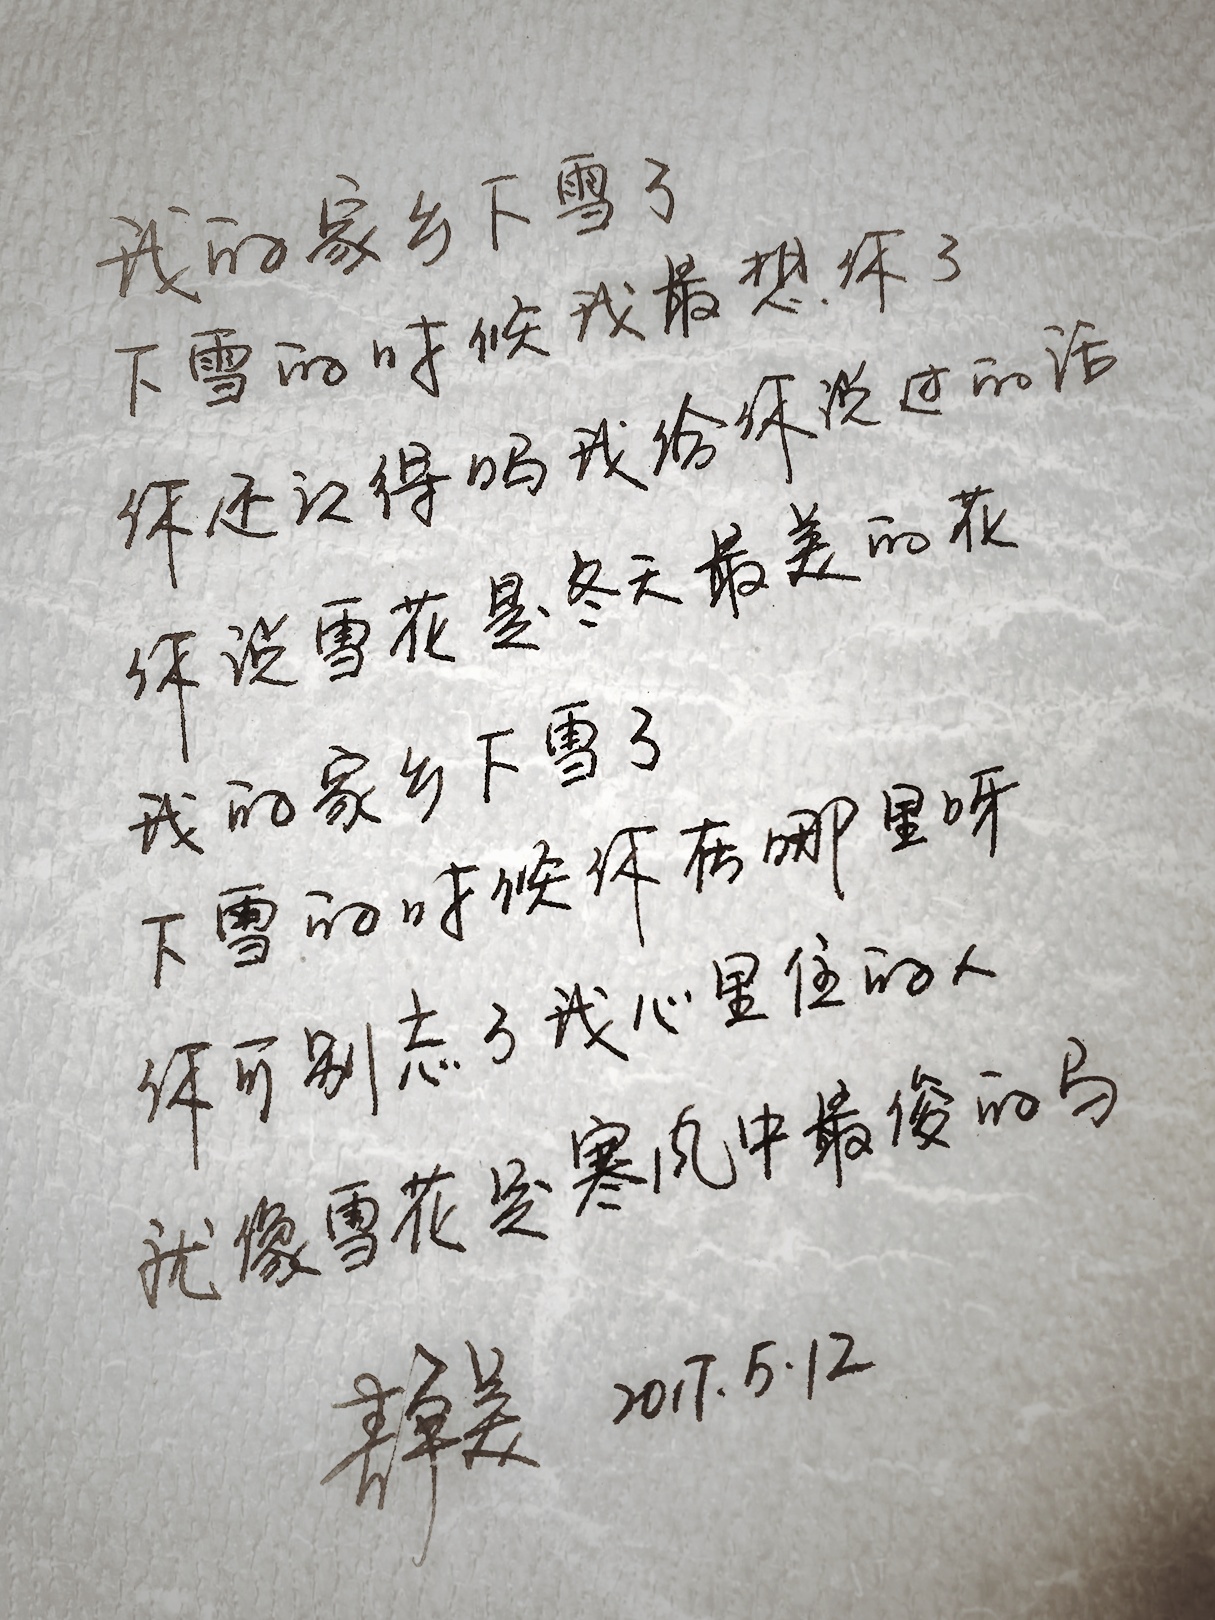 我的家乡下雪了
下雪的时候我最想你了
你还记得吗我给你说过的话
你说雪花是冬天最美的花
我的家乡下雪了
下雪的时候你在哪里呀
你可别忘了我心里住的人
就像雪花是寒风中最俊的马
静美 2017.5.12